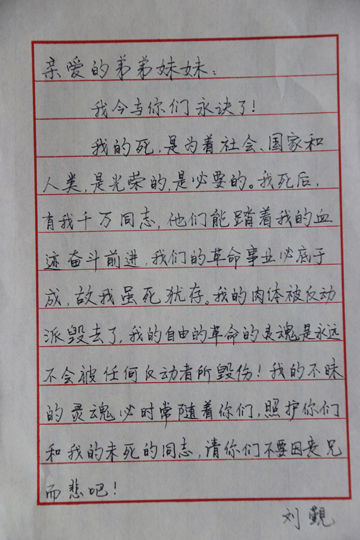 亲爱的弟弟妹妹:
我今与你们永诀了!
我的死,是为着社会、国家和
人类,是光荣的,是必要的。我死后,
有我千万同志,他们能踏着我的血
迹奋斗前进,我们的革命事业必底于
成,故我虽死犹存。我的肉体被反动
派毁去了,我的自由的革命的灵魂是永远
不会被任何反动者所毁伤!我的不昧
的灵魂必时常随着你们,照护你们
和我的未死的同志,请你们不要因丧兄
而悲吧!
刘觐